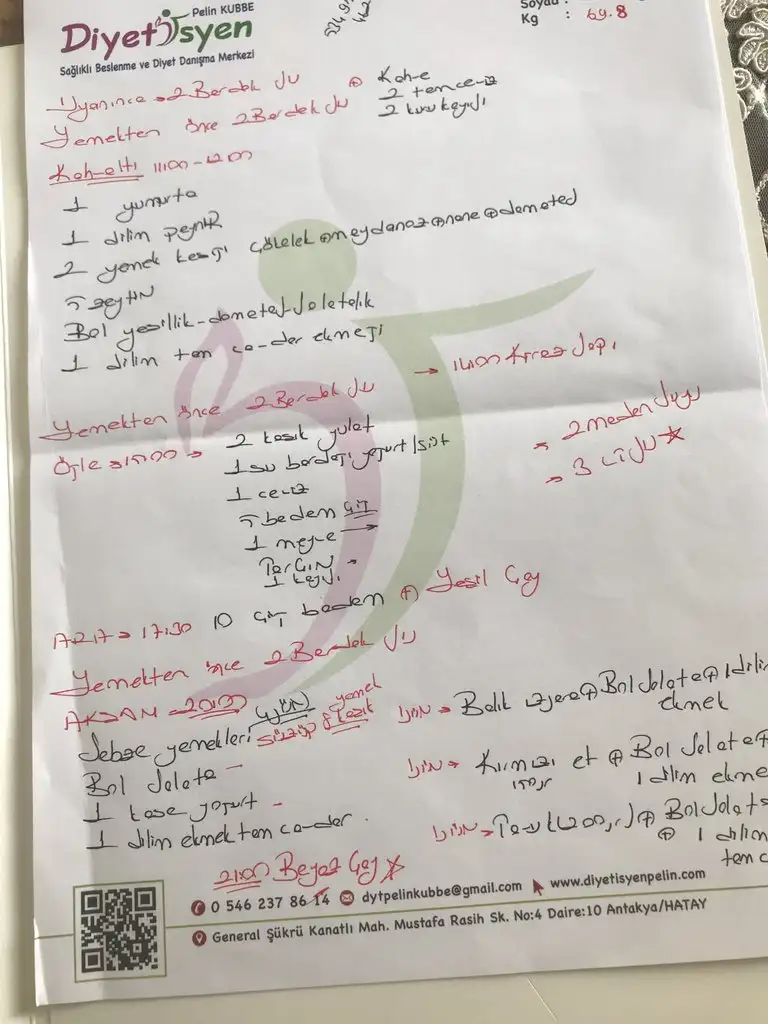 Pelin KUBBE
Diyetisyen
Sağlıklı Beslenme ve Diyet Danışma Merkezi
Soyadı :
Kg : 69.8
Uyanınca → 2 Bardak su
Yemekten önce 2 Bardak su ⊕ Kahve
2 tane ceviz
2 kuru kayısı
Kahvaltı 11:00 - 12:00
1 yumurta
1 dilim peynir
2 yemek kaşığı çökelek ⊕ maydanoz ⊕ nane ⊕ domates
5 zeytin
Bol yeşillik - domates - salatalık
1 dilim tam çavdar ekmeği
Yemekten önce 2 Bardak su → 14:00 Kiraz sapı
Öğle → 15:00 → 2 kaşık yulaf
1 su bardağı yoğurt / süt
1 ceviz
5 badem çiğ
1 meyve →
Tarçın
1 kayısı
→ 2 maden suyu
→ 3 Lt su ☆
ARA → 17:30 10 çiğ badem ⊕ Yeşil Çay
Yemekten önce 2 Bardak su
AKŞAM → 20:00
Sebze yemekleri süzüp 8 kaşık yemek
Bol Salata
1 kase yoğurt
1 dilim ekmek tam çavdar
1 gün → Balık ızgara ⊕ Bol Salata ⊕ 1 dilim ekmek
1 gün → Kırmızı et ⊕ Bol Salata ⊕
150gr 1 dilim ekme
1 gün → Tavuk (200gr) ⊕ Bol Salata
⊕ 1 dilim
tam ç
21:00 Beyaz Çay ☆
0 546 237 86 14 dytpelinkubbe@gmail.com www.diyetisyenpelin.com
General Şükrü Kanatlı Mah. Mustafa Rasih Sk. No:4 Daire:10 Antakya/HATAY